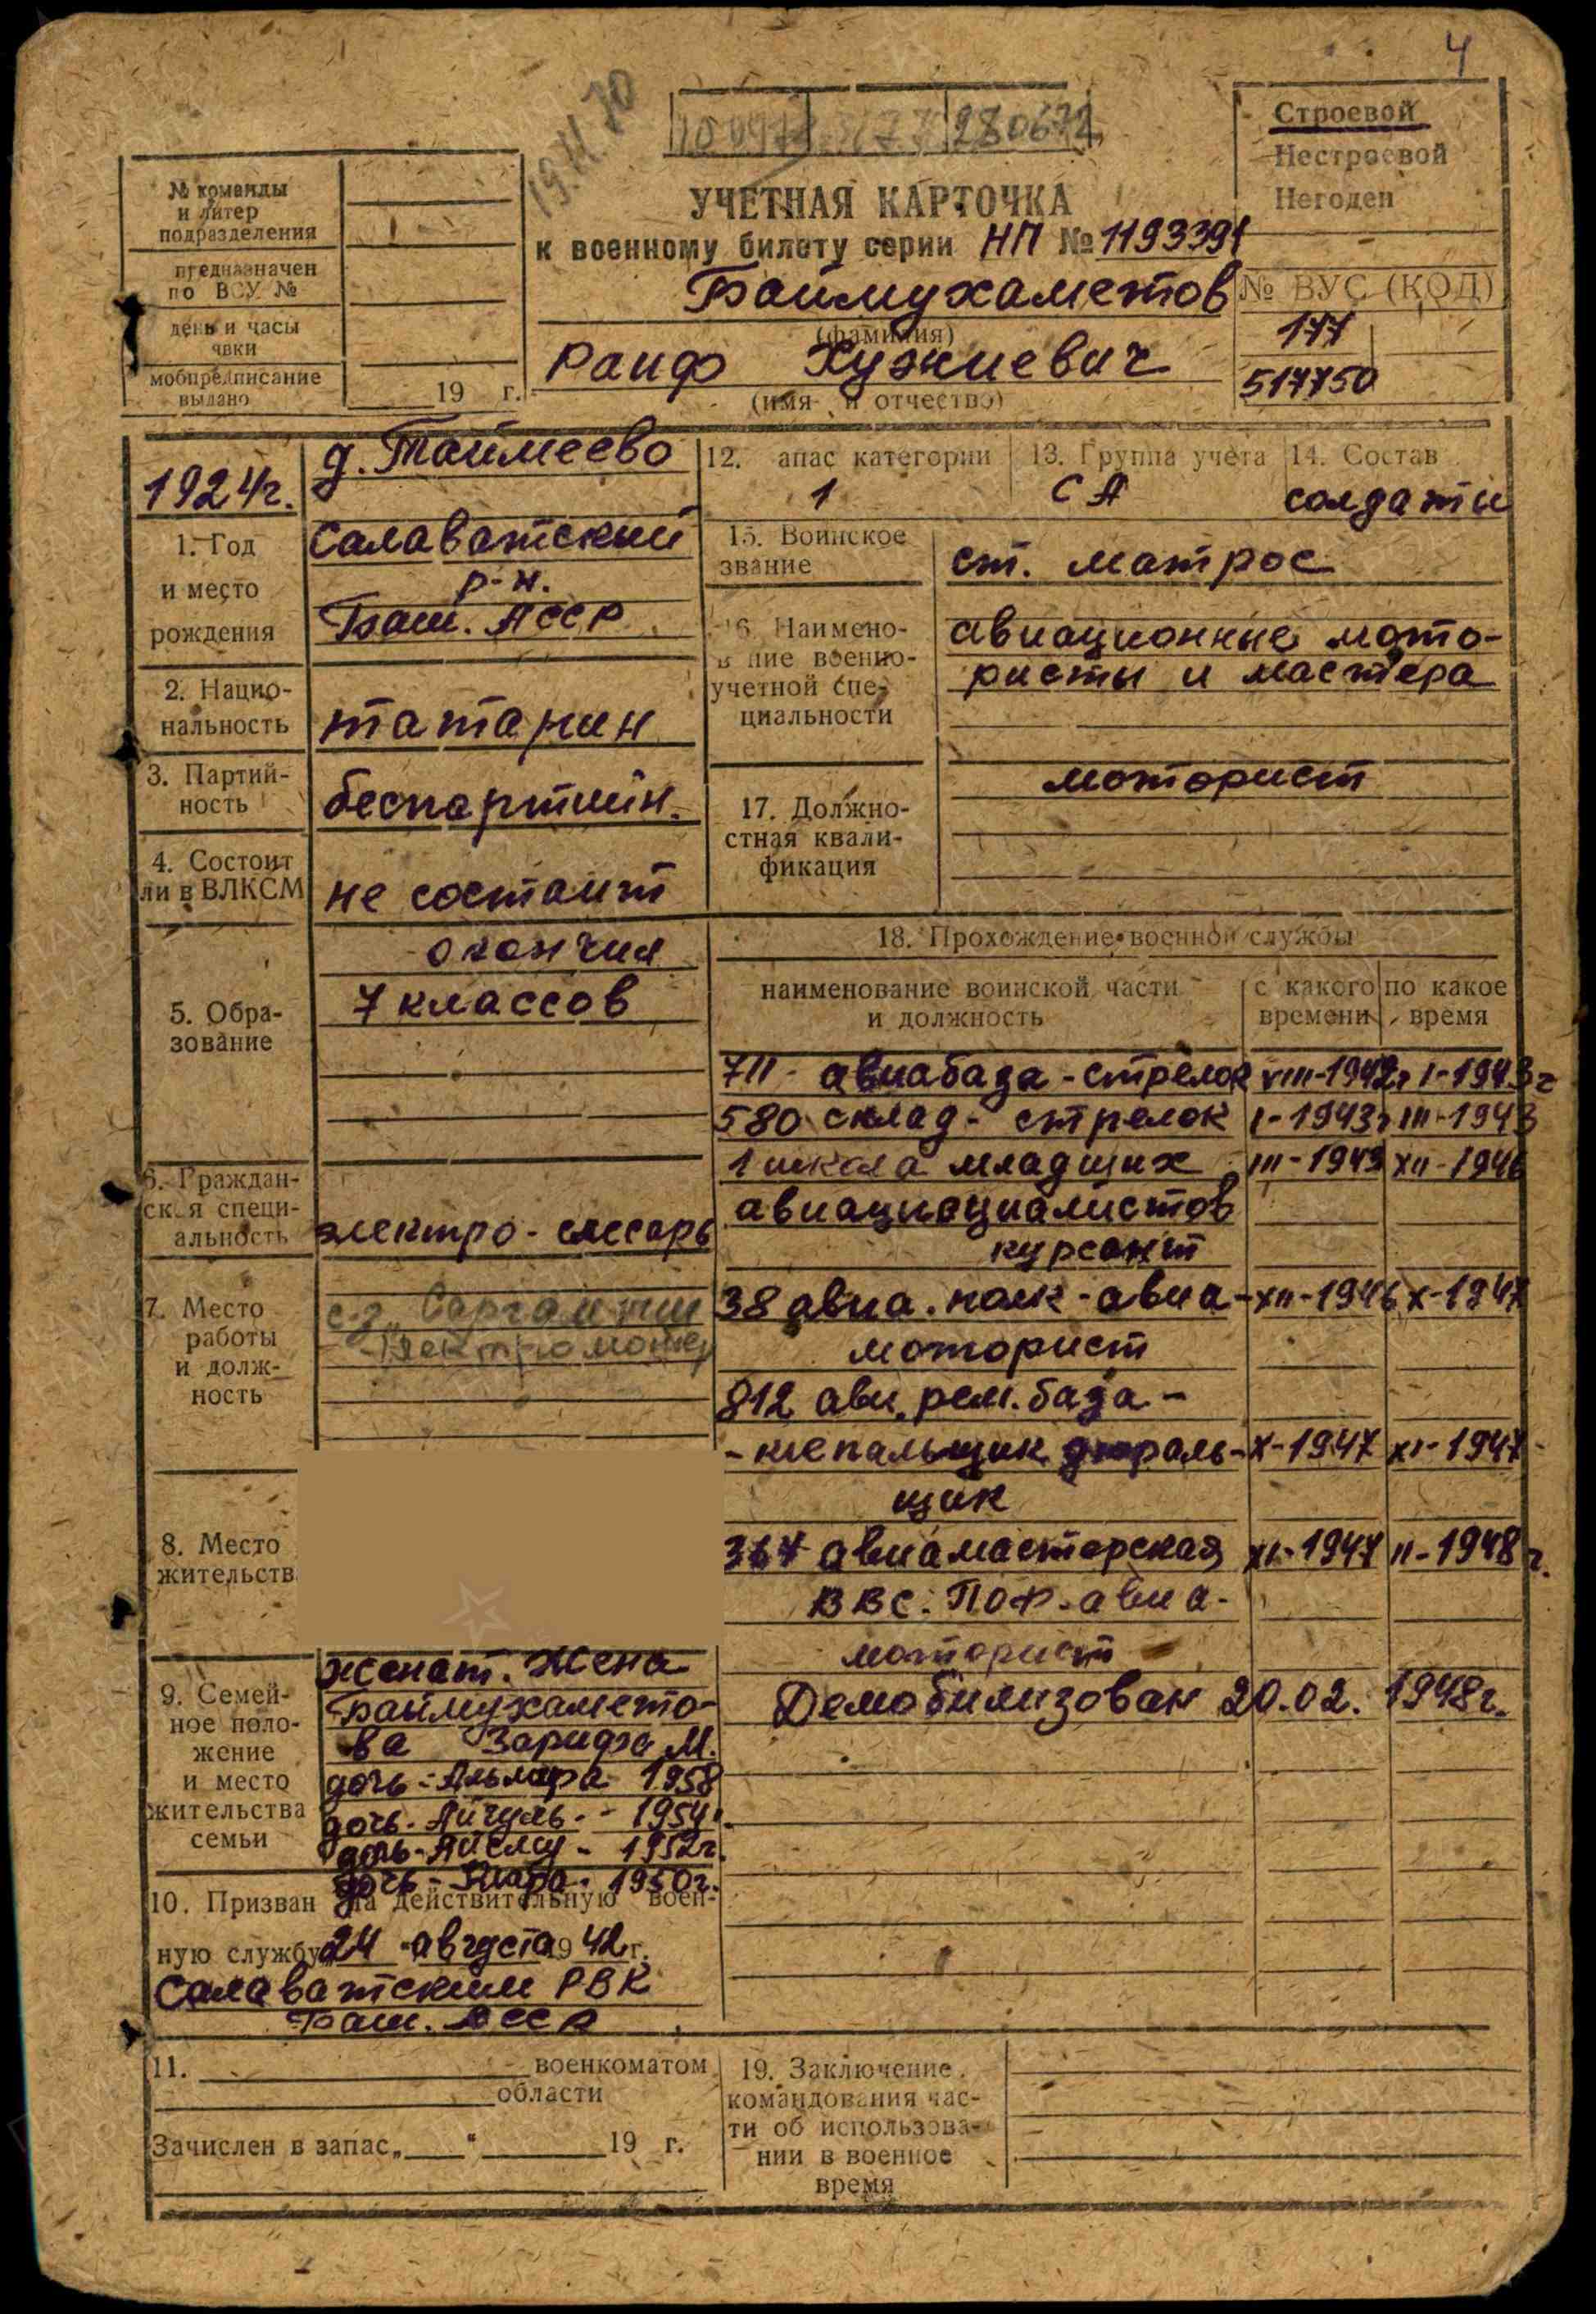 4
19.11.70
280672
Строевой
Нестроевой
Негоден
№ команды
и литер
подразделения
предназначен
по ВСУ №
день и часы
явки
мобпредписание
выдано
19 г.
УЧЕТНАЯ КАРТОЧКА
к военному билету серии НП № 1193391
Баймухаметов
(фамилия)
Раиф Хужиевич
(имя и отчество)
№ ВУС (КОД)
177
517750
1924г.
1. Год
и место
рождения
д. Таймеево
Салаватский
р-н.
Баш. АССР
2. Нацио-
нальность
татарин
3. Партий-
ность
беспартийн.
4. Состоит
ли в ВЛКСМ
не состоит
5. Обра-
зование
окончил
7 классов
6. Граждан-
ская специ-
альность
электро-слесарь
7. Место
работы
и долж-
ность
8. Место
жительств
9. Семей-
ное поло-
жение
и место
жительства
семьи
женат. Жена
Баймухамето-
ва Зарифа М.
дочь - 1958
дочь - Айгуль - 1954
дочь - Айслу - 1952г.
дочь - 1950г.
10. Призван на действительную воен-
ную службу 24 августа 1942 г.
Салаватским РВК
Баш. АССР
11. военкоматом
области
Зачислен в запас „ “ 19 г.
12. апас категории
1
13. Группа учета
СА
14. Состав
солдаты
15. Воинское
звание
ст. матрос
16. Наимено-
в ние военно-
учетной спе-
циальности
авиационные мото-
ристы и мастера
17. Должно-
стная квали-
фикация
моторист
18. Прохождение военной службы
наименование воинской части
и должность
с какого
времени
по какое
время
711 - авиабаза - стрелок VIII-1942г I-1943г
580 склад - стрелок I-1943г III-1943
1 школа младших III-1943 XII-1946
авиациоциалистов
курсант
38 авиа. полк - авиа- XII-1946 X-1947
моторист
812 ави. рем. база -
- клепальщик дюраль- X-1947 XI-1947
щик
367 авиамастерская XI-1947 II-1948г.
ВВС. ПОФ - авиа-
моторист
Демобилизован 20.02. 1948г.
19. Заключение
командования час-
ти об использова-
нии в военное
время